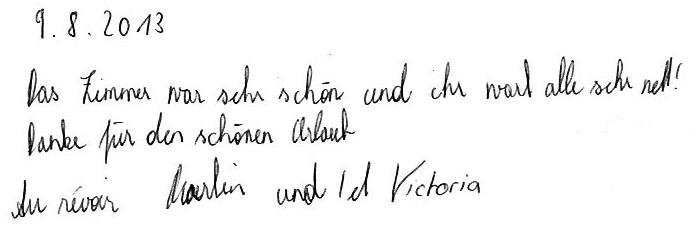 9.8.2013
Das Zimmer war sehr schön und ihr wart alle sehr nett!
Danke für den schönen Urlaub
Au révoir Martin und Victoria